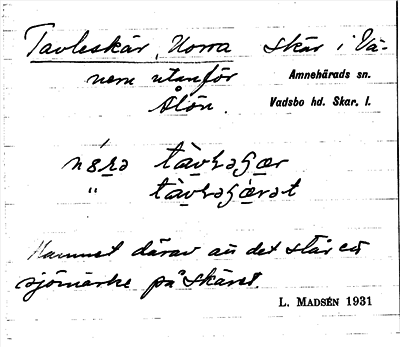 Tavleskär, Norra skär i Vä-
nern utanför Amnehärads sn.
Alön. Vadsbo hd. Skar. l.
nɵrə tàvləʂær
" tàvləʂærət
Namnet därav att det står ett
sjömärke på skäret.
L. MADSÉN 1931